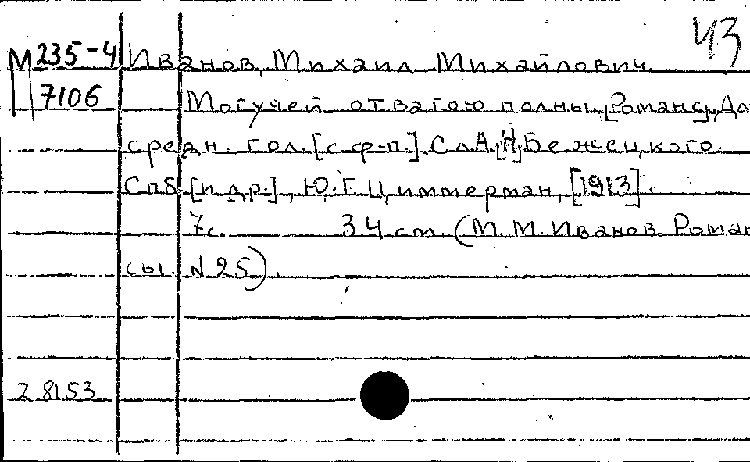 43
М 235-4 Иванов, Михаил Михайлович
7106 Могучей отвагою полны. [Романс]. Дл
средн. гол. [с ф-п.]. Сл. А. [Н.] Бежецкого.
Спб. [и др.], Ю. Г. Циммерман, [1913].
7с. 34 см. (М. М. Иванов. Роман
сы. № 25).
28153